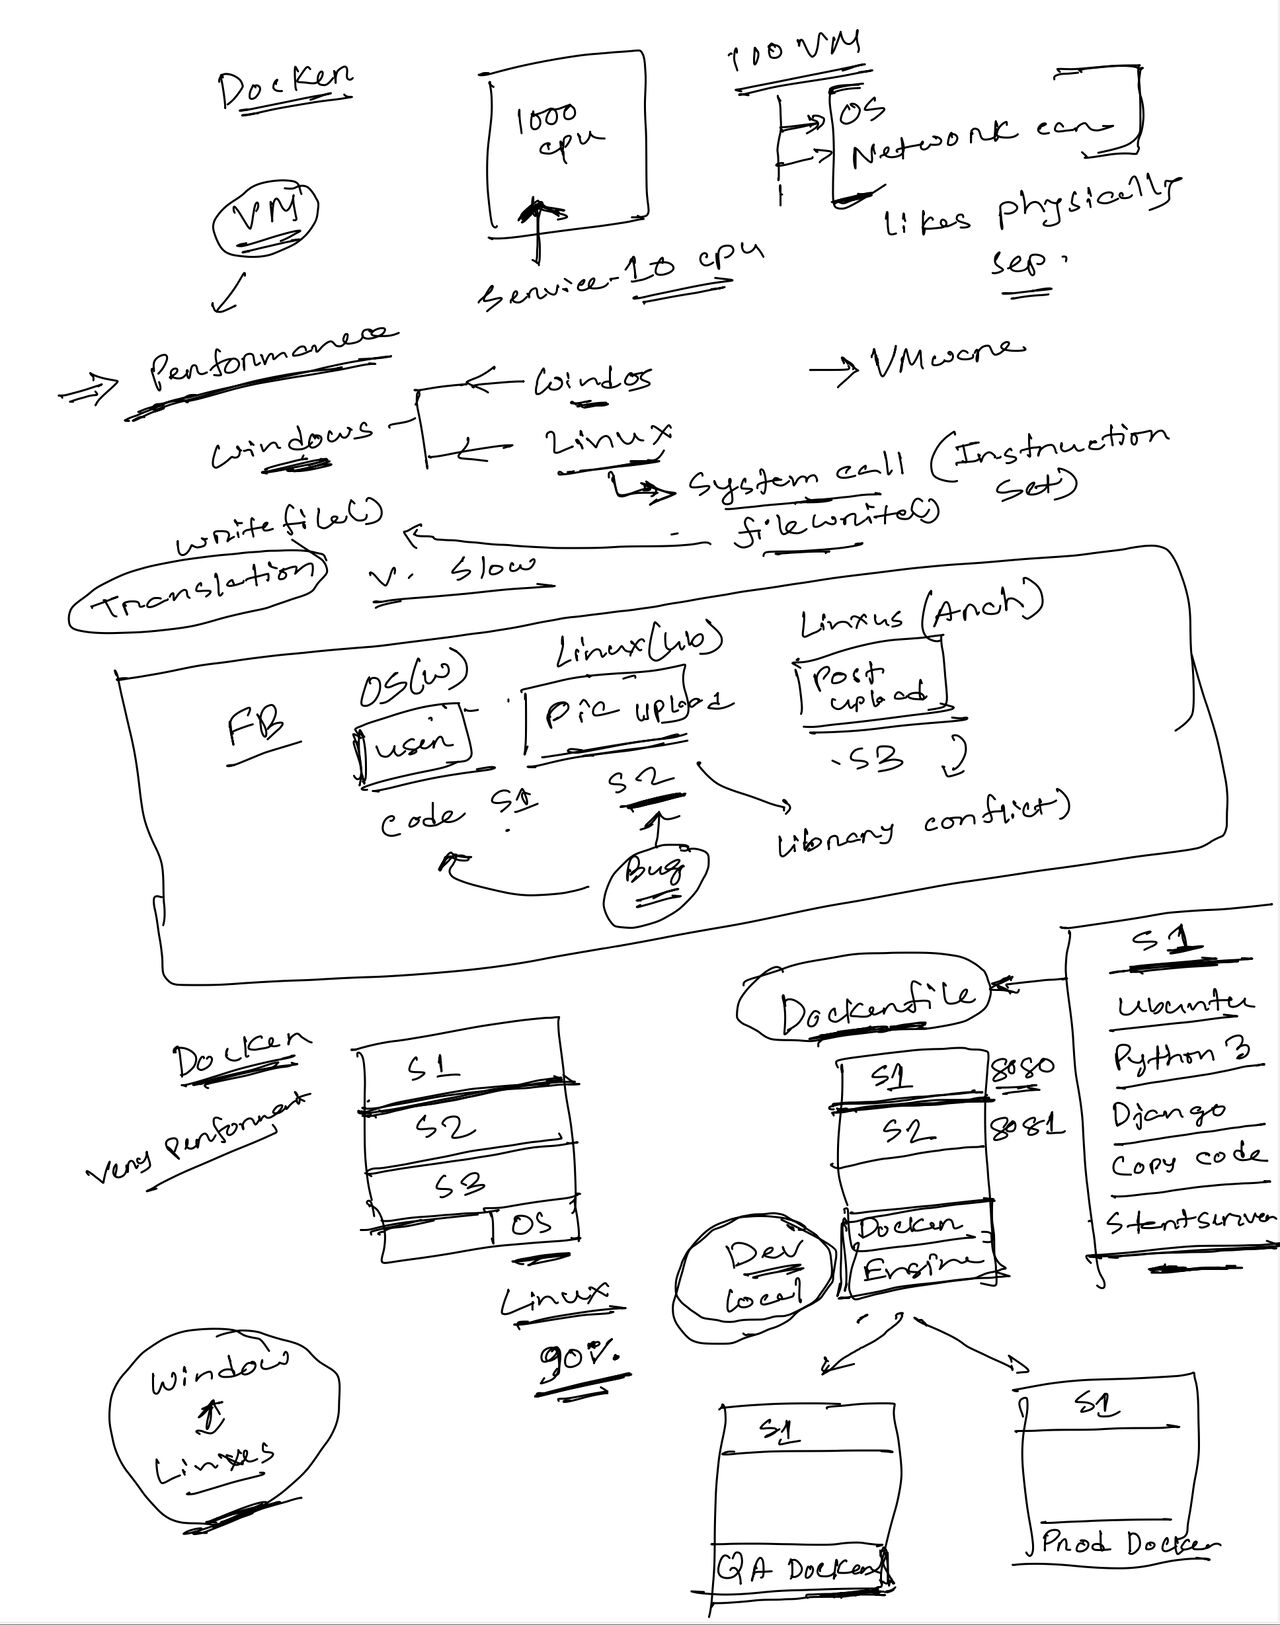 Docker
1000
cpu
100 VM
OS
Network can
likes physically
sep.
VM
service-10 cpu
Performance
VMware
windos
windows
Linux
System call (Instruction
set)
writefile()
filewrite()
Translation
v. slow
FB
OS(W)
user
code S1
Linux(Ub)
Pic upload
S2
Bug
Linxus (Arch)
Post
upload
S3
library conflict)
Dockerfile
S1
Ubuntu
Python 3
Django
Copy code
Docker
Very performant
S1
S2
S3
OS
Linux
90%.
S1
8080
S2
8081
Docker
Engine
Dev
local
Window
Linxes
S1
QA Docker
S1
Prod Docker